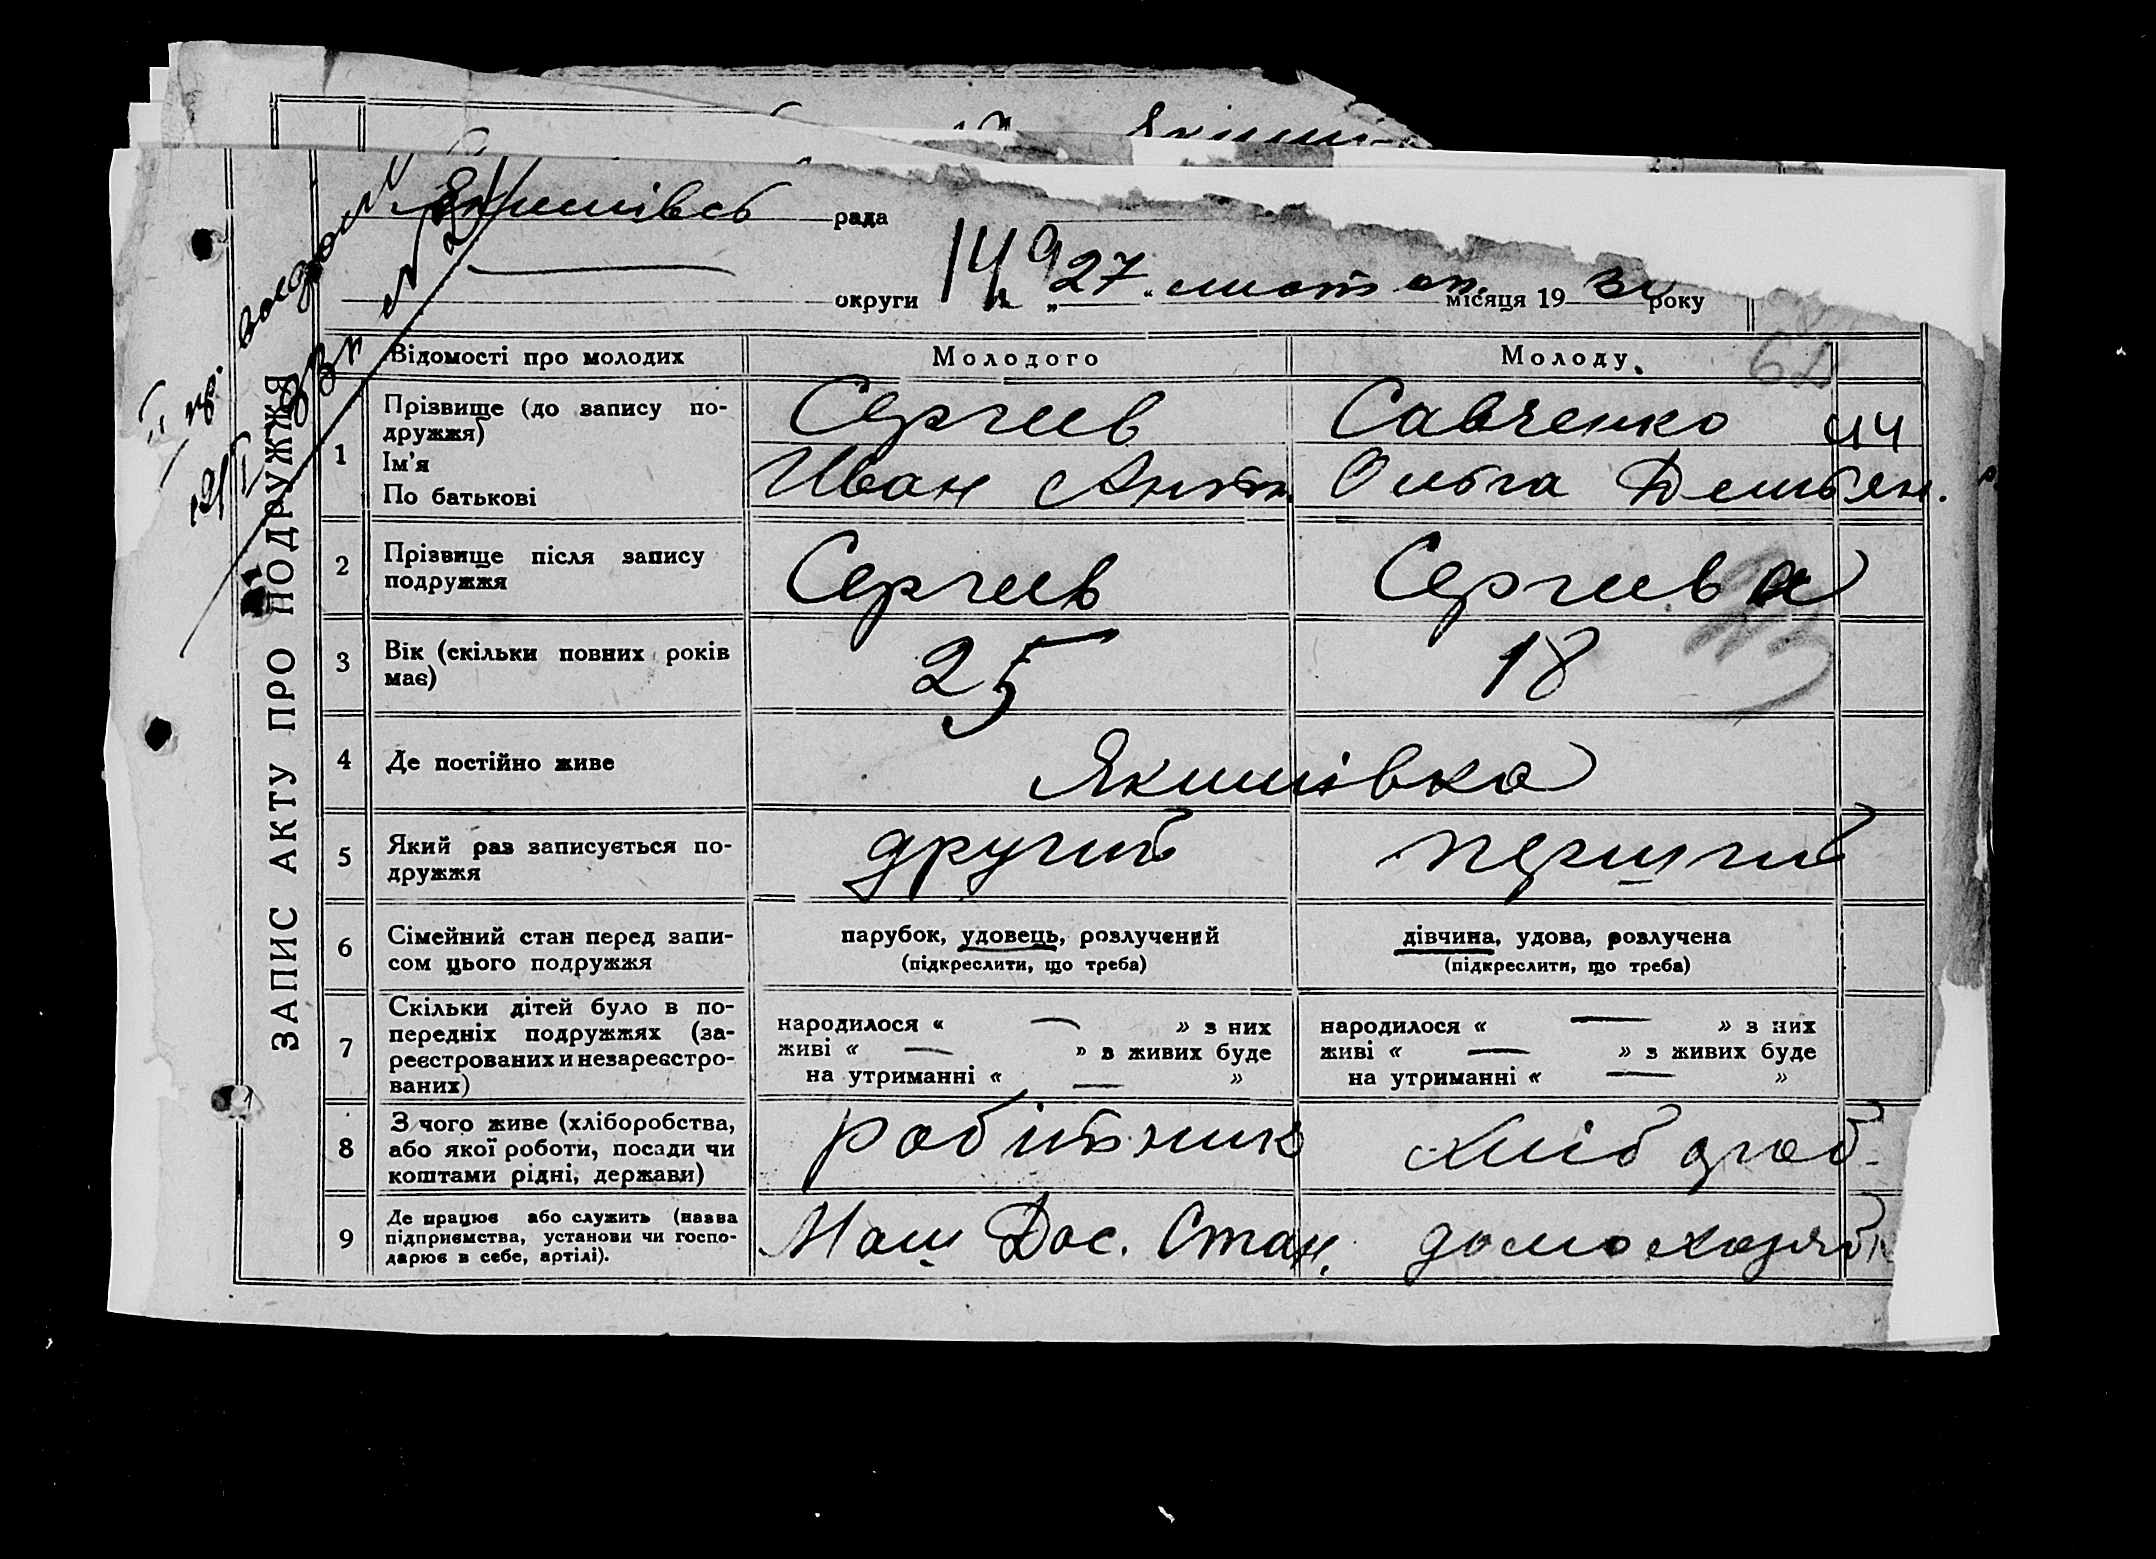 Якимівсь рада
округи 149 „27“ лютого місяця 19 31 року
ЗАПИС АКТУ ПРО ПОДРУЖЖЯ
Відомості про молодих Молодого Молоду
62
1 Прізвище (до запису по-
дружжя)
Ім'я
По батькові
Сергеев Савченко 44
Иван Антон. Ольга Демьян.
2 Прізвище після запису
подружжя
Сергеев Сергеева
3 Вік (скільки повних років
має)
25 18
4 Де постійно живе Якимівка
5 Який раз записується по-
дружжя
другий перший
6 Сімейний стан перед запи-
сом цього подружжя
парубок, удовець, розлучений
(підкреслити, що треба)
дівчина, удова, розлучена
(підкреслити, що треба)
7 Скільки дітей було в по-
передніх подружжях (за-
реєстрованих и незареєстро-
ваних)
народилося « — » з них
живі « — » з живих буде
на утриманні « — »
народилося « — » з них
живі « — » з живих буде
на утриманні « — »
8 З чого живе (хліборобства,
або якої роботи, посади чи
коштами рідні, держави)
робітник хлібороб
9 Де працює або служить (назва
підприємства, установи чи госпо-
дарює в себе, артілі).
Маш Дос. Стан. домохазяй